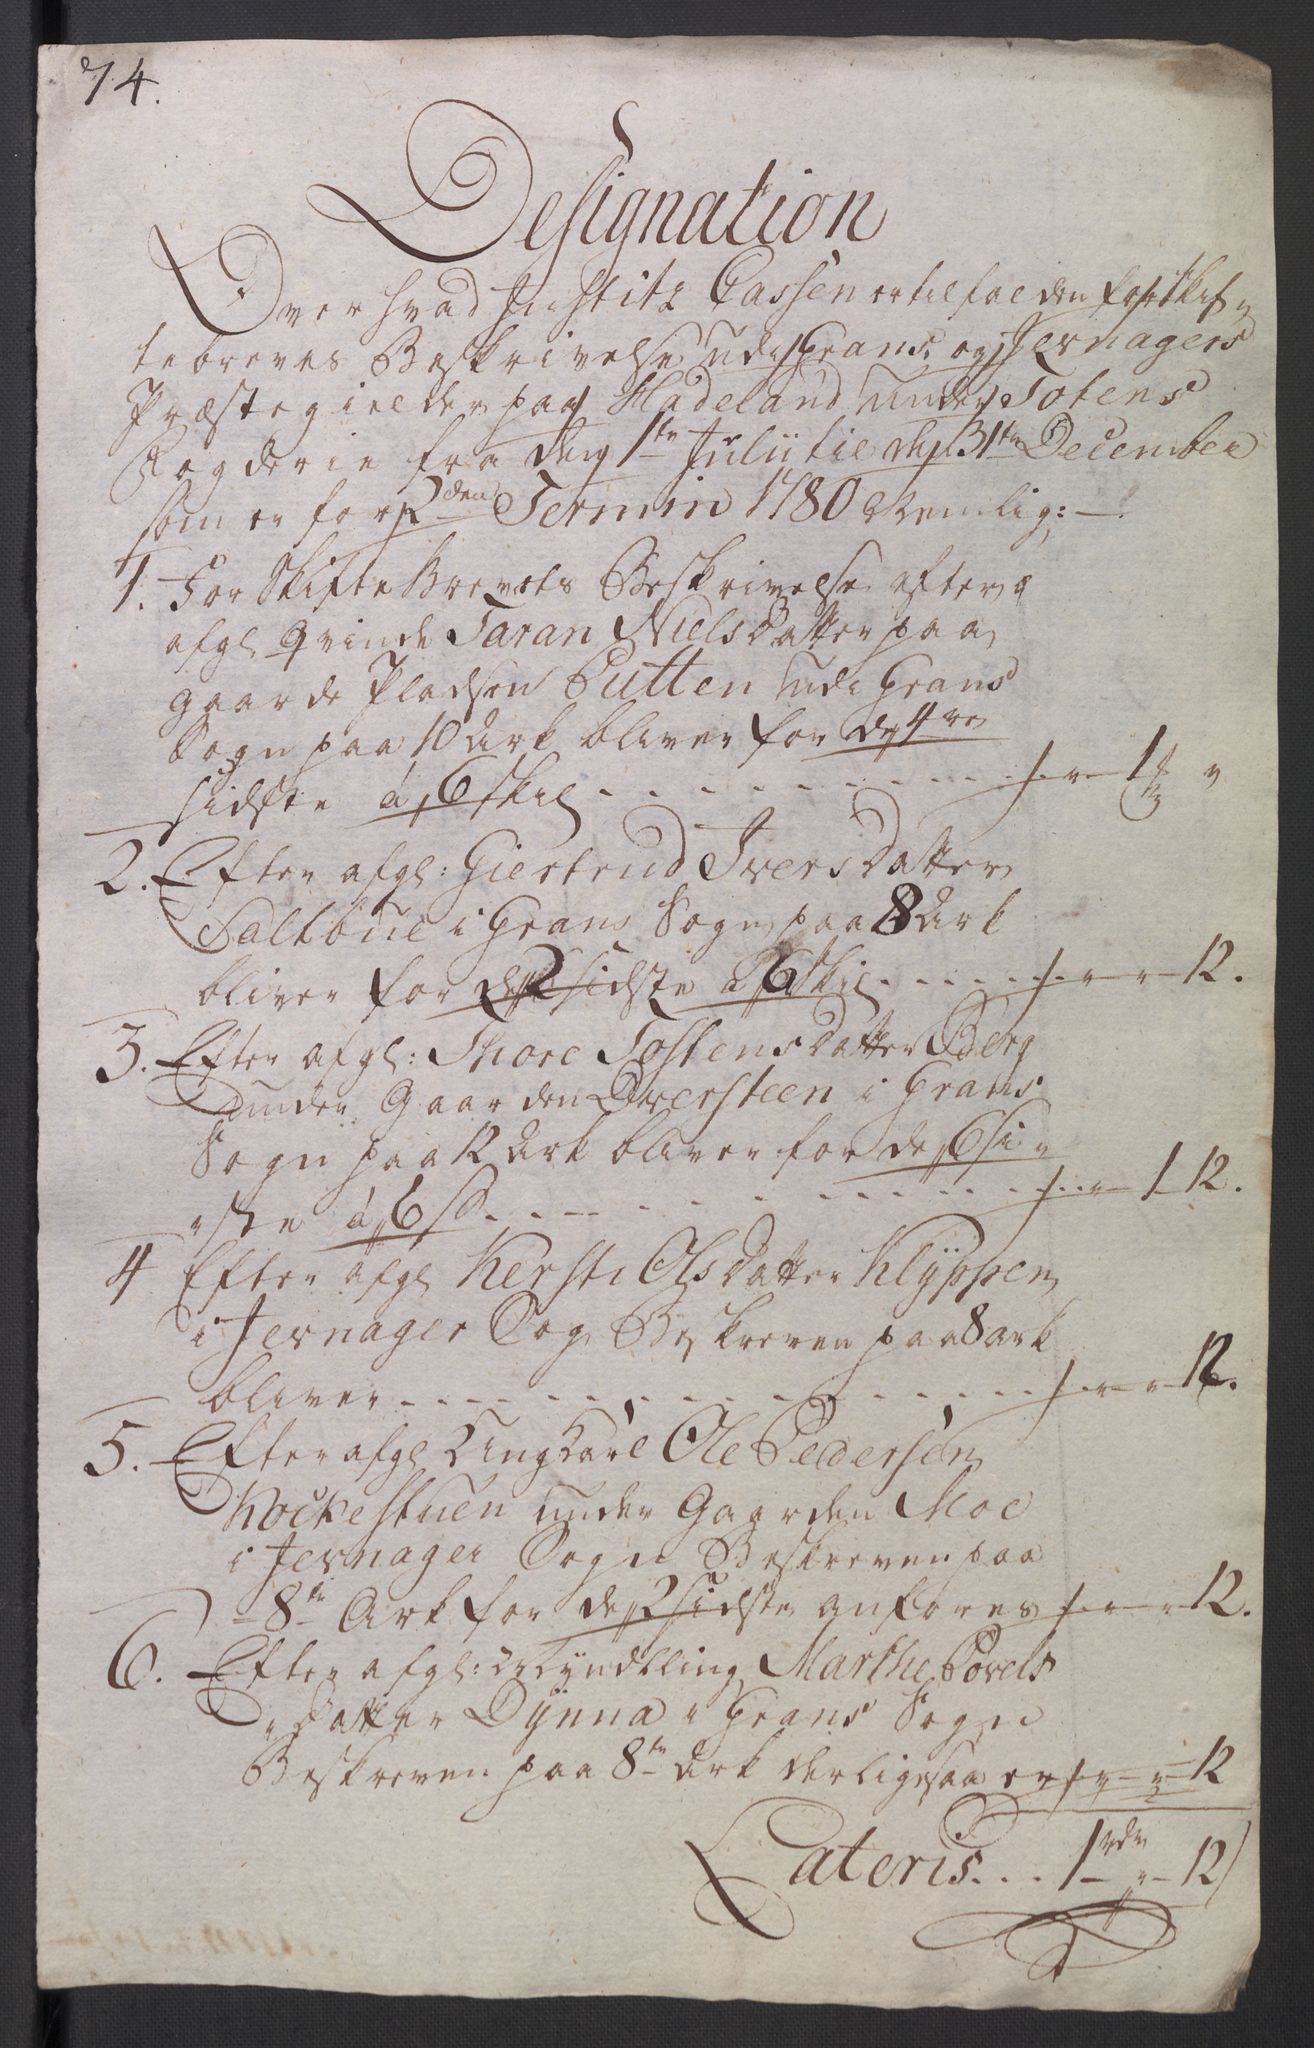 74.
Designation
Over hvad Justitz Cassen er tilfalden for Skif-
tebreves Beskrivelse udi Grans og Jevnagers
Præstegielder paa Hadeland under Totens
Fogderie fra den 1te Julij til den 31te December
som er for 2den Termin 1780 Nemlig:
1. For Skifte Brevets Beskrivelse efter
afgl. Qvinde Taran Niels Datter paa
gaarde Pladsen Putten udi Grans
Sogn paa 10 Ark bliver for de 4re
sidste á 6 Skil . . . . 1
2. Efter afgl: Giertrud Ivers Datter
Saltbue i Grans Sogn paa 8 Ark
bliver for de 2 sidste á 6 Skil . . . . 12.
3. Efter afgl: Thore Tostens Datter Berg
under Gaarden Oversteen i Grans
Sogn paa 12 Ark bliver for de 6 si-
ste á 6 s . . . . 1 12.
4 Efter afgl Kersti Ols Datter Klÿppen
i Jevnager Sog Beskreven paa 8 ark
bliver . . . . 12.
5. Efter afgl Ung Karl Ole Pedersen
Kockestuen under Gaarden Moe
i Jevnager Sogn Beskreven paa
8te Ark for de 2 sidste anføres 12.
6. Efter afgl: Myndling Marthe Povels
Datter Dÿnna i Grans Sogn
Beskreven paa 8te Ark derligesaa er 12
Lateris . . . 1 rdr " 12